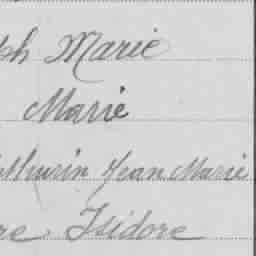 ph Marie
Marie
thurin Jean Marie
re Isidore